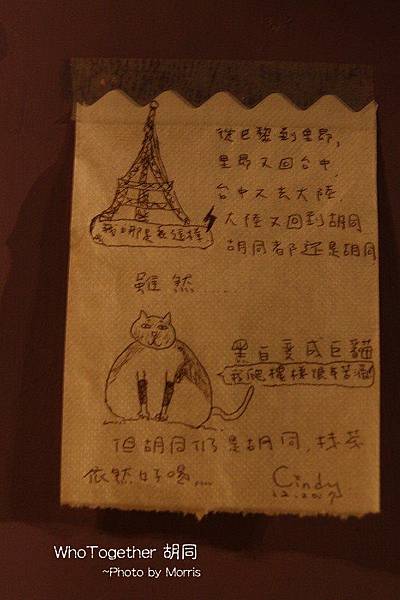 從巴黎到里昂,
里昂又回台中,
台中又去大陸,
大陸又回到胡同
胡同都還是胡同
我哪是長這樣
雖然......
黑白變成巨貓
我爬樓梯很辛苦
但胡同仍是胡同, 抹茶
依然好喝....
Cindy
WhoTogether 胡同
~Photo by Morris